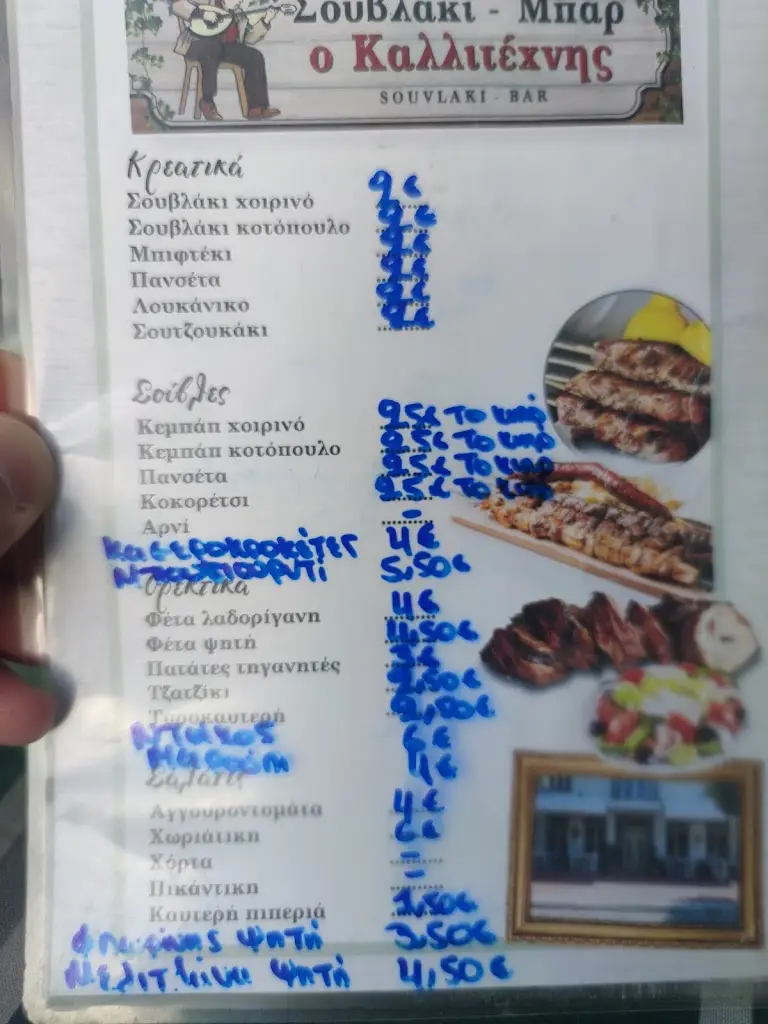 Σουβλάκι - Μπαρ
ο Καλλιτέχνης
SOUVLAKI - BAR
Κρεατικά
Σουβλάκι χοιρινό 2€
Σουβλάκι κοτόπουλο 2€
Μπιφτέκι 2€
Πανσέτα 2€
Λουκάνικο 2€
Σουτζουκάκι 2€
Σούβλες
Κεμπάπ χοιρινό 25€ το κιλό
Κεμπάπ κοτόπουλο 25€ το κιλό
Πανσέτα 25€ το κιλό
Κοκορέτσι 25€ το κιλό
Αρνί -
κασεροκροκέτες 4€
Μπουγιουρντί 5,50€
Ορεκτικά
Φέτα λαδορίγανη 4€
Φέτα ψητή 4,50€
Πατάτες τηγανητές 3€
Τζατζίκι 2,50€
Τυροκαυτερή 2,50€
Ντάκος 6€
Μαρούλι 4€
Σαλάτες
Αγγουροντομάτα 4€
Χωριάτικη 6€
Χόρτα -
Πικάντικη -
Καυτερή πιπεριά 1,50€
φλωρίνης ψητή 3,50€
Μελιτζάνα ψητή 4,50€